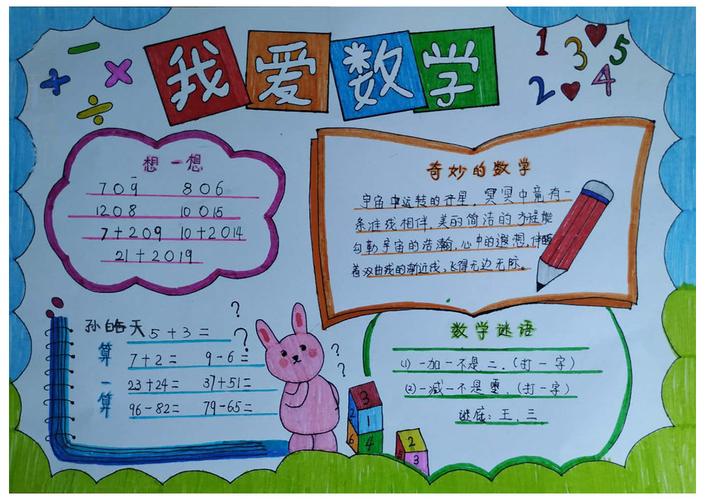 我爱数学
+ − × ÷
1 3 5
2 4
想一想
709 806
1208 10015
7+209 10+2014
21+2019
奇妙的数学
宇宙中运转的行星，冥冥中竟有一
条准线相伴，美的简洁的方程能
勾勒宇宙的浩瀚，心中的遐想，伴随
着双曲线的渐近线，飞得无边无际。
孙皓天
算一算
5+3=
7+2= 9-6=
23+24= 37+51=
96-82= 79-65=
? ? ? ?
3
1
6 4
2
1 3
数学谜语
(1)一加一不是二．(打一字)
(2)一减一不是零．(打一字)
谜底：王、三